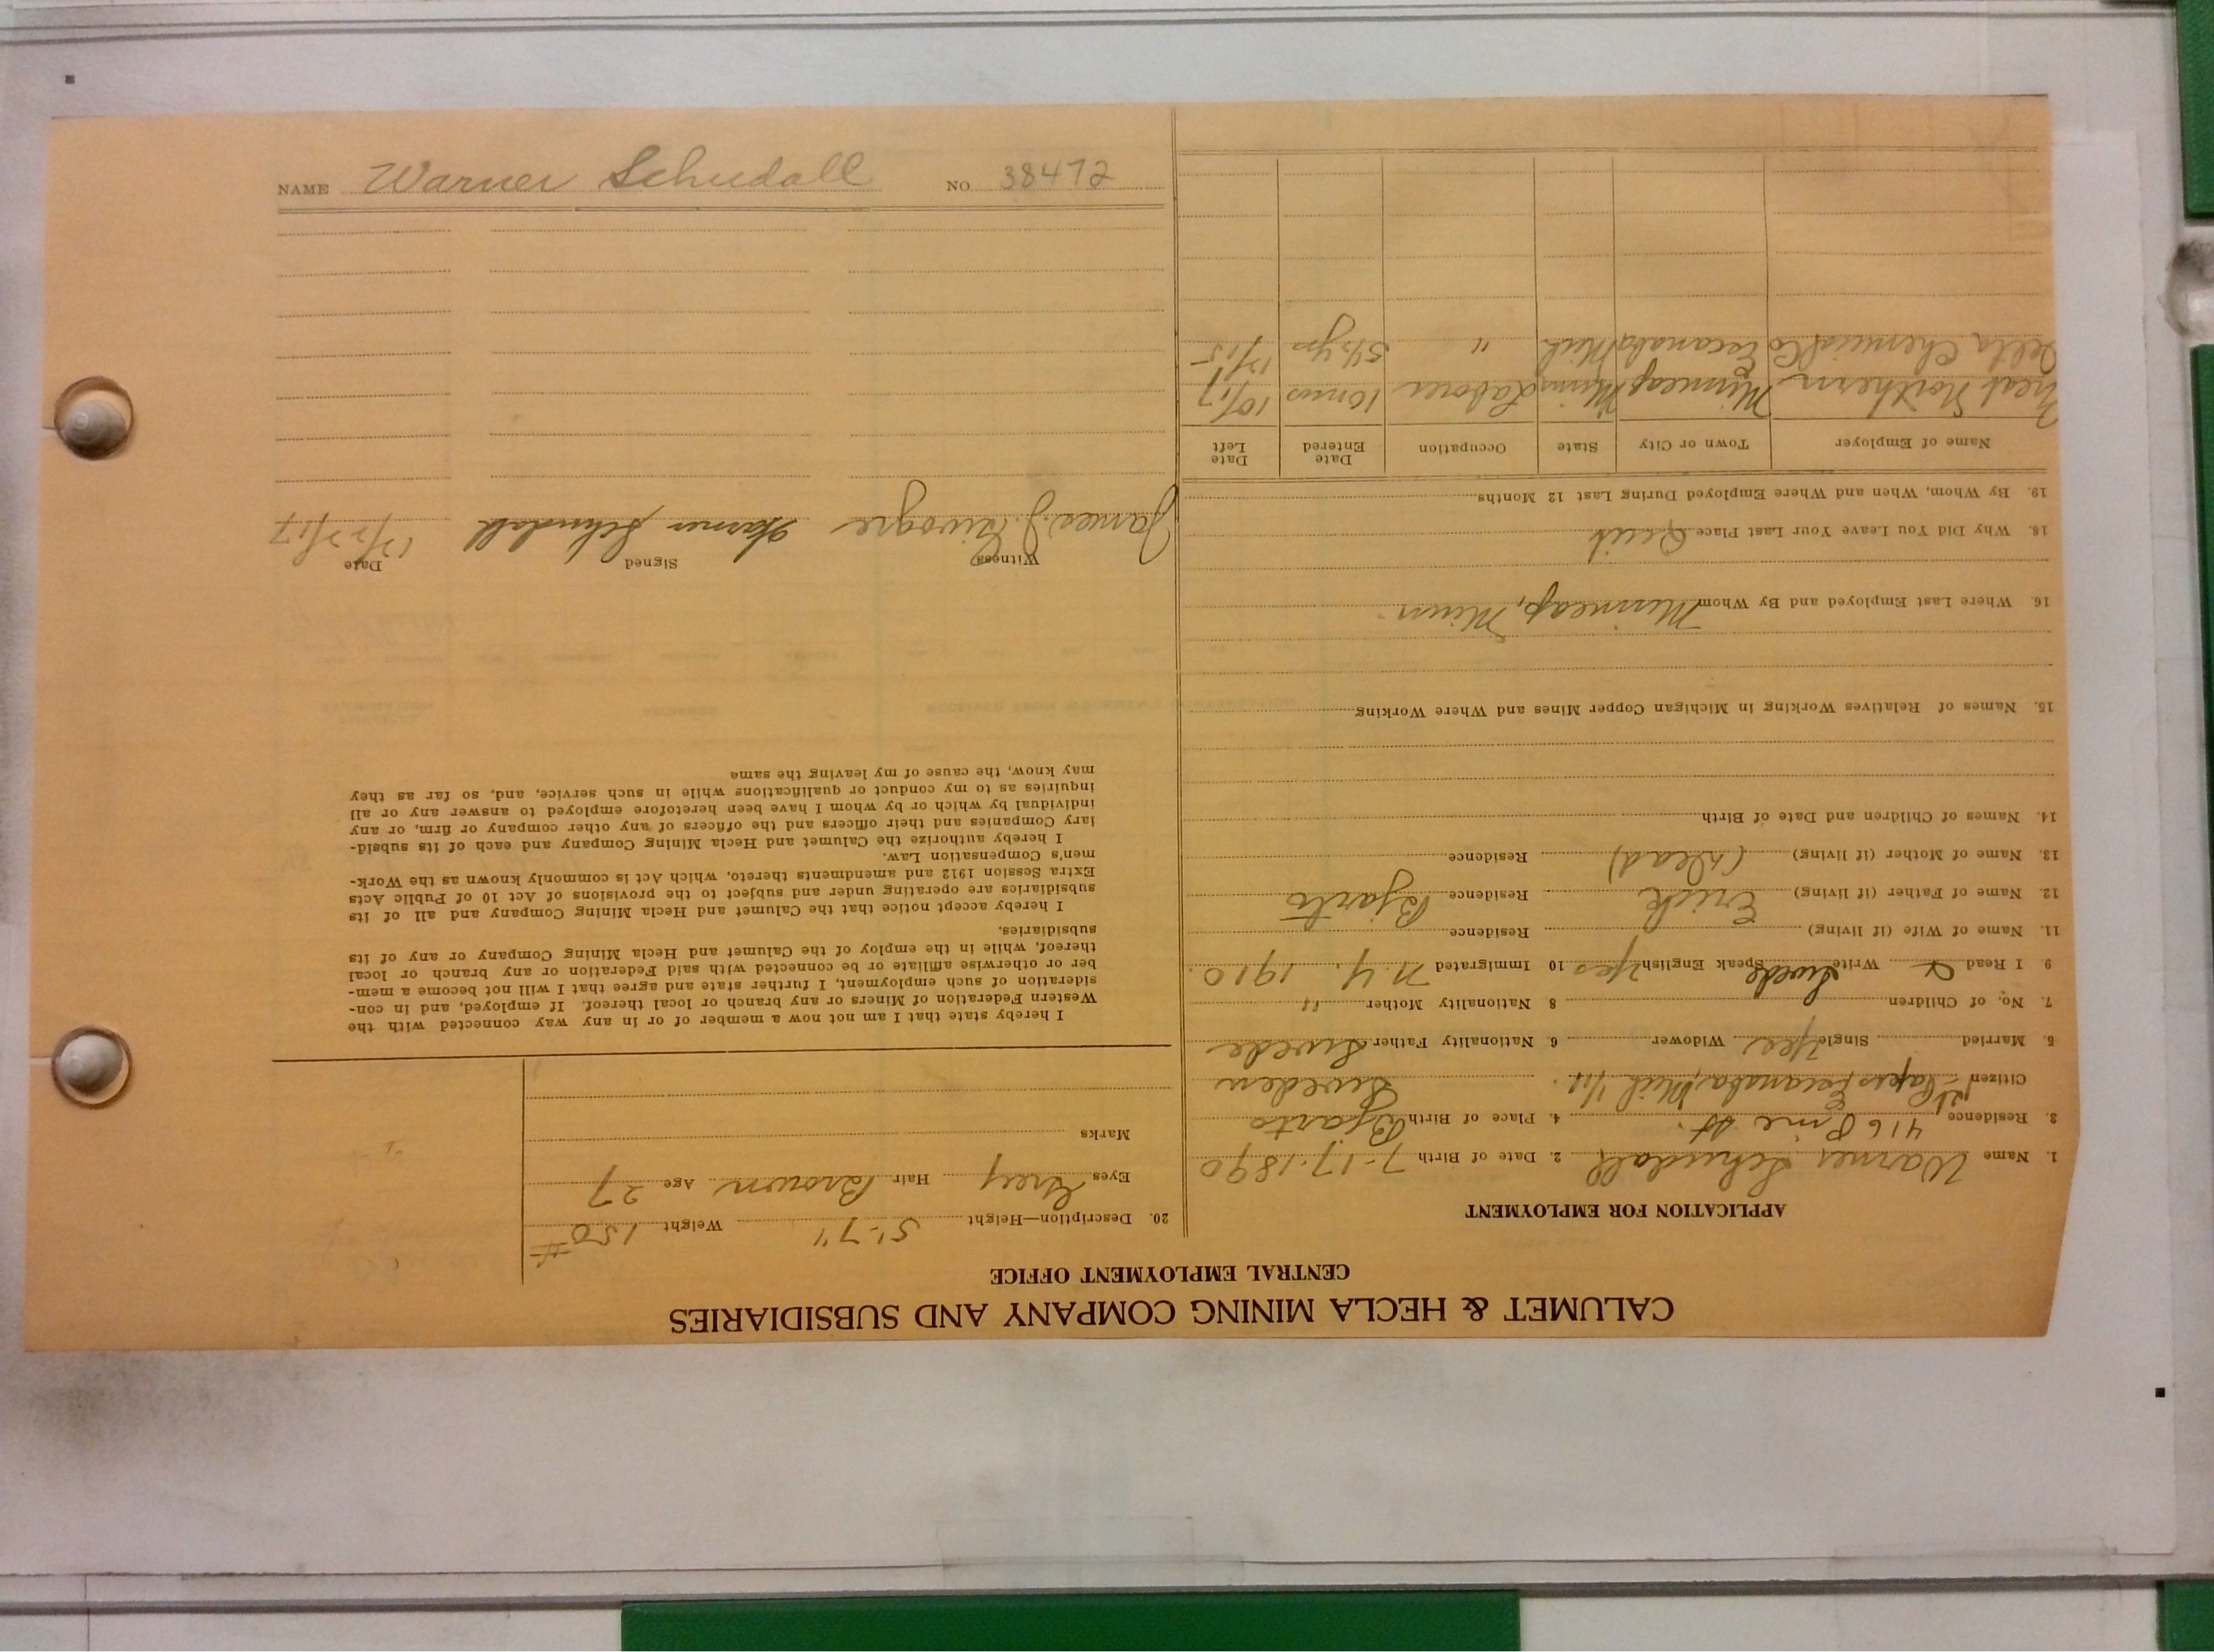 CALUMET & HECLA MINING COMPANY AND SUBSIDIARIES
CENTRAL EMPLOYMENT OFFICE
APPLICATION FOR EMPLOYMENT
1. Name Warner Schudall 2. Date of Birth 7-17-1890
3. Residence 416 Pine St. 4. Place of Birth Bjarto
Citizen 1st Papers Escanaba, Mich 1/11 Sweden
5. Married Single Yes Widower 6. Nationality Father Swede
7. No. of Children 8 Nationality Mother "
9 I Read & Write Swede Speak English Yes 10 Immigrated N.Y. 1910.
11. Name of Wife (if living) Residence
12. Name of Father (if living) Erick Residence Bjarto
13. Name of Mother (if living) (Dead) Residence
14. Names of Children and Date of Birth
15. Names of Relatives Working in Michigan Copper Mines and Where Working
16. Where Last Employed and By Whom Minneap, Minn.
18. Why Did You Leave Your Last Place Quit
19. By Whom, When and Where Employed During Last 12 Months
Name of Employer Town or City State Occupation Date Entered Date Left
Great Northern Minneap Minn Laborer 10 mos 10/17
Delta Chemical Co Escanaba Mich " 5½ yrs 12/15
20. Description—Height 5'-7" Weight 150#
Eyes Grey Hair Brown Age 27
Marks
I hereby state that I am not now a member of or in any way connected with the
Western Federation of Miners or any branch or local thereof. If employed, and in con-
sideration of such employment, I further state and agree that I will not become a mem-
ber or otherwise affiliate or be connected with said Federation or any branch or local
thereof, while in the employ of the Calumet and Hecla Mining Company or any of its
subsidiaries.
I hereby accept notice that the Calumet and Hecla Mining Company and all of its
subsidiaries are operating under and subject to the provisions of Act 10 of Public Acts
Extra Session 1912 and amendments thereto, which Act is commonly known as the Work-
men's Compensation Law.
I hereby authorize the Calumet and Hecla Mining Company and each of its subsid-
iary Companies and their officers and the officers of any other company or firm, or any
individual by which or by whom I have been heretofore employed to answer any or all
inquiries as to my conduct or qualifications while in such service, and, so far as they
may know, the cause of my leaving the same
Witness Signed Date
James J. Warner Schudall 12/27/17
NAME Warner Schudall NO. 38472